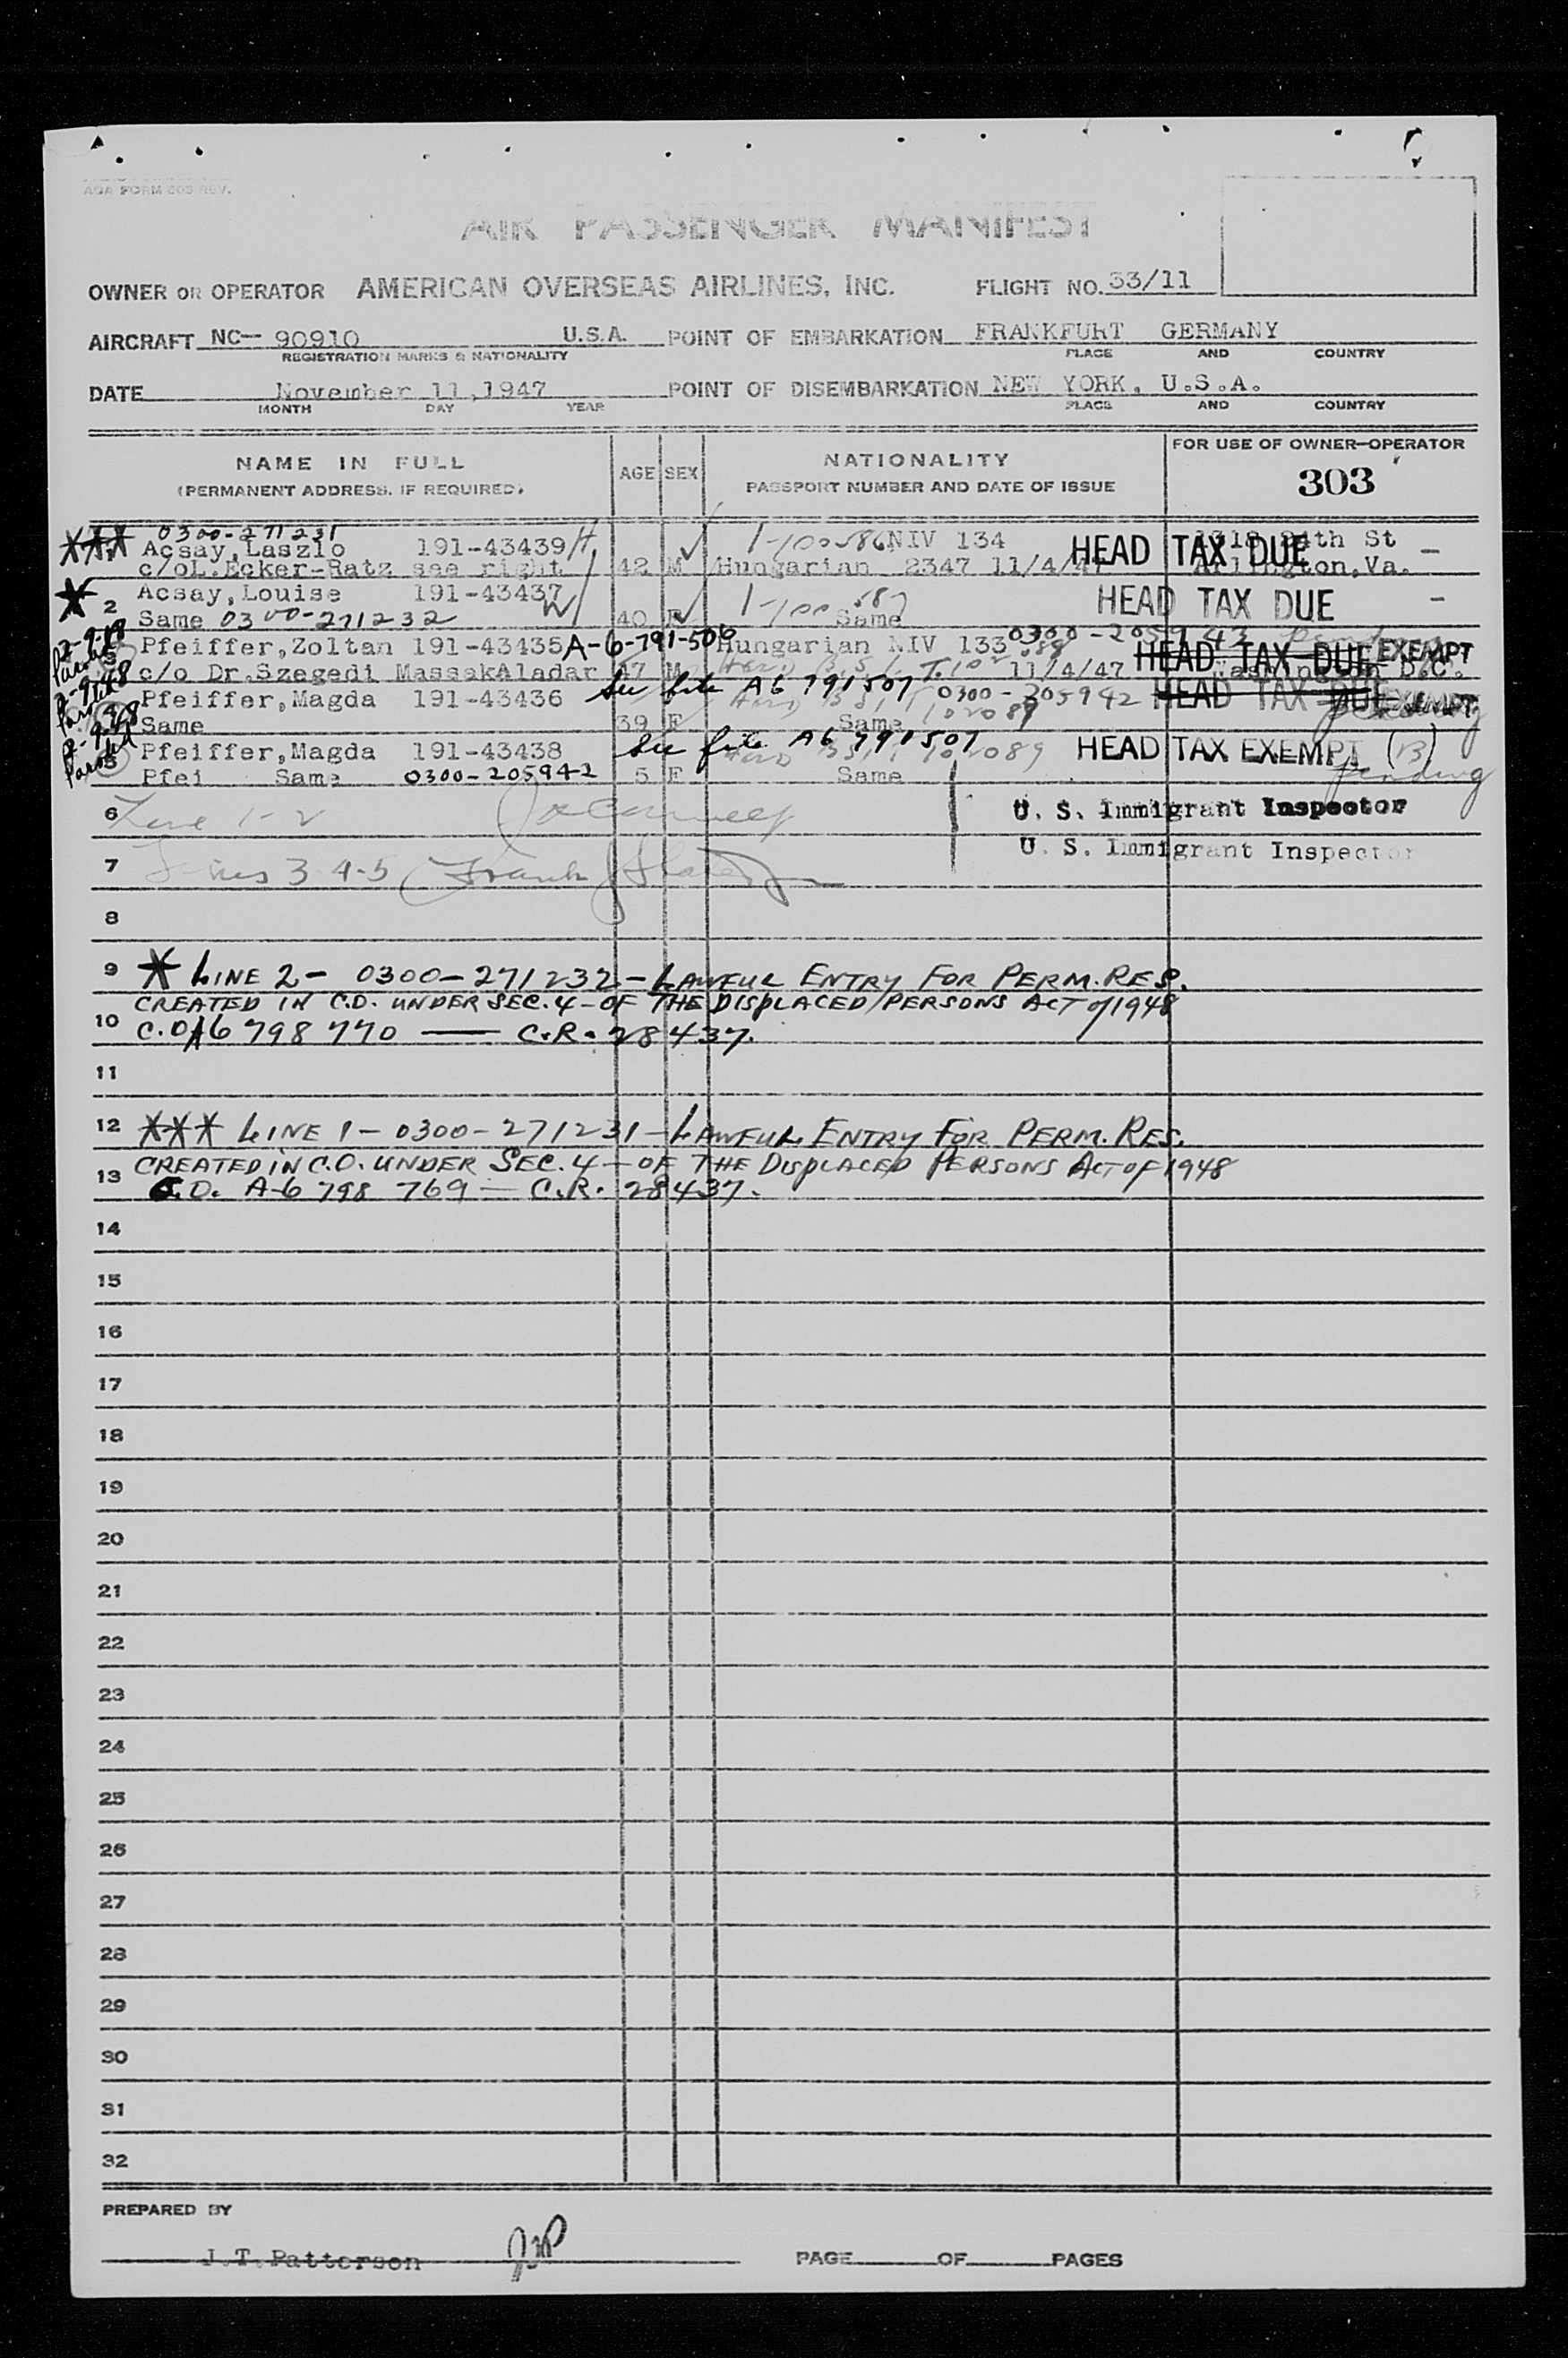 AOA FORM 803 REV.
AIR PASSENGER MANIFEST
OWNER OR OPERATOR AMERICAN OVERSEAS AIRLINES, INC. FLIGHT NO. 33/11
AIRCRAFT NC- 90910 U.S.A. POINT OF EMBARKATION FRANKFURT GERMANY
REGISTRATION MARKS & NATIONALITY PLACE AND COUNTRY
DATE November 11,1947 POINT OF DISEMBARKATION NEW YORK, U.S.A.
MONTH DAY YEAR PLACE AND COUNTRY
NAME IN FULL AGE SEX NATIONALITY FOR USE OF OWNER-OPERATOR
(PERMANENT ADDRESS, IF REQUIRED) PASSPORT NUMBER AND DATE OF ISSUE 303
0300-271231
Acsay,Laszlo 191-43439 H 1-100586 NIV 134 HEAD TAX DUE 24th St -
c/oL.Ecker-Ratz see right 42 M Hungarian 2347 11/4/47 Arlington,Va.
2 Acsay,Louise 191-43437 W 1-100587 HEAD TAX DUE -
Same 0300-271232 40 F Same
Pfeiffer,Zoltan 191-43435 A-6-791-506 Hungarian NIV 133 0300-205943 pending
c/o Dr.Szegedi MassakAladar 47 M 11/4/47 HEAD TAX DUE EXEMPT Washington D.C.
Pfeiffer,Magda 191-43436 See file A6 791507 0300-205942 HEAD TAX DUE EXEMPT
Same 39 F Same pending
5 Pfeiffer,Magda 191-43438 See file A6 791507 HEAD TAX EXEMPT (B)
Pfei Same 0300-205942 5 F Same pending
6 Line 1-2 U. S. Immigrant Inspector
7 Lines 3 4-5 Frank U. S. Immigrant Inspector
8
9 * LINE 2- 0300-271232-LAWFUL ENTRY FOR PERM. RES.
CREATED IN C.O. UNDER SEC. 4-OF THE DISPLACED PERSONS ACT of 1948
10 C.O. A6 798 770 — C.R. 28437.
11
12 *** LINE 1-0300-271231-LAWFUL ENTRY FOR PERM. RES.
CREATED IN C.O. UNDER SEC. 4-OF THE DISPLACED PERSONS ACT OF 1948
13 C.O. A-6 798 769 — C.R. 28437.
14
15
16
17
18
19
20
21
22
23
24
25
26
27
28
29
30
31
32
PREPARED BY
J.T.Patterson PAGE OF PAGES